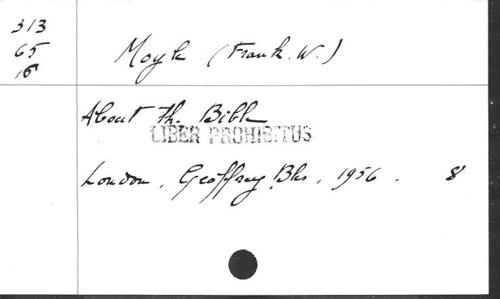 313
65
16
Moyle (Frank. W.)
About the Bible
LIBER PROHIBITUS
London, Geoffrey Bles, 1956. 8